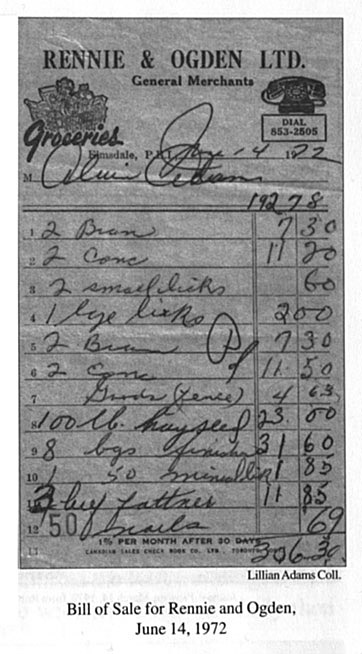 RENNIE & OGDEN LTD.
General Merchants
Groceries
DIAL
853-2505
Elmsdale, P.E.I. June 14 1972
M Alvin Adams
192 78
1 2 Bran 7 30
2 2 Conc 11 20
3 2 small licks 60
4 1 lge licks 2 00
5 2 Bran 7 30
6 2 Conc 11 50
7 Goods (Fence) 4 63
8 100 lb. hayseed 23 00
9 8 bgs finisher 31 60
10 1 50 mineral lik 1 85
3 fattner 11 85
12 50 nails 69
1½% PER MONTH AFTER 30 DAYS
13 CANADIAN SALES CHECK BOOK CO. LTD., TORONTO 306.30
Lillian Adams Coll.
Bill of Sale for Rennie and Ogden,
June 14, 1972